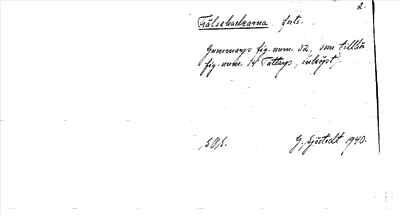 2.
Frälsebackarna forts.
Gunmarps fig. num. 32, som tillhör
fig. num. 14 Tattarp, inköpt.
S.O.S. G. Sjöstedt 1940.